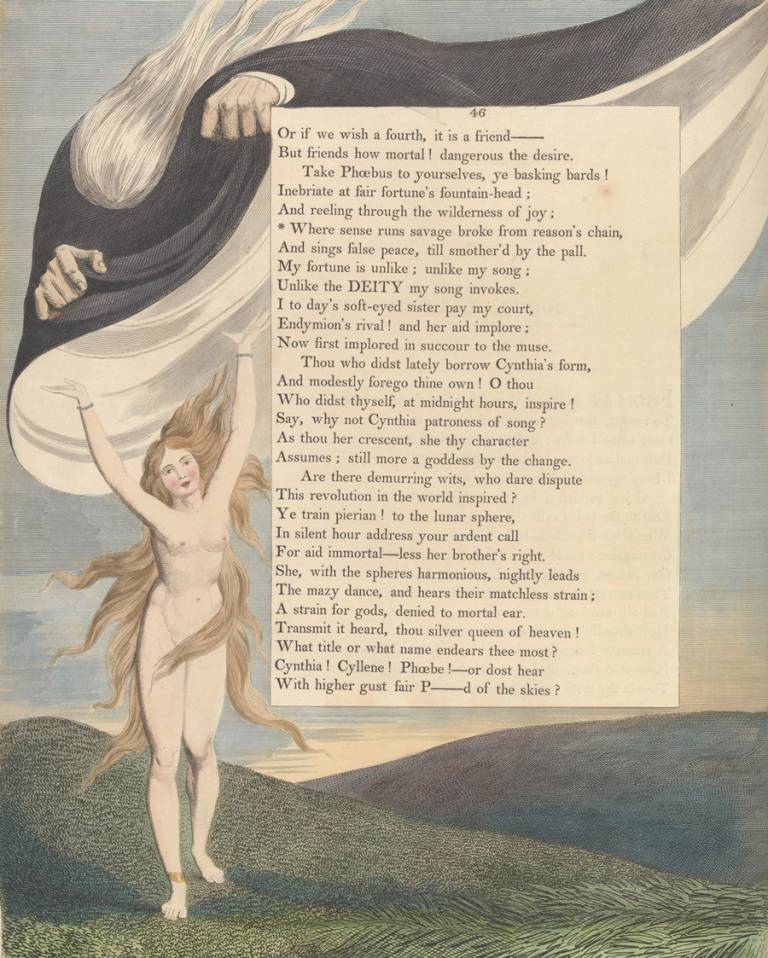 46
Or if we wish a fourth, it is a friend——
But friends how mortal! dangerous the desire.
Take Phœbus to yourselves, ye basking bards!
Inebriate at fair fortune's fountain-head;
And reeling through the wilderness of joy;
* Where sense runs savage broke from reason's chain,
And sings false peace, till smother'd by the pall.
My fortune is unlike; unlike my song;
Unlike the DEITY my song invokes.
I to day's soft-eyed sister pay my court,
Endymion's rival! and her aid implore;
Now first implored in succour to the muse.
Thou who didst lately borrow Cynthia's form,
And modestly forego thine own! O thou
Who didst thyself, at midnight hours, inspire!
Say, why not Cynthia patroness of song?
As thou her crescent, she thy character
Assumes; still more a goddess by the change.
Are there demurring wits, who dare dispute
This revolution in the world inspired?
Ye train pierian! to the lunar sphere,
In silent hour address your ardent call
For aid immortal—less her brother's right.
She, with the spheres harmonious, nightly leads
The mazy dance, and hears their matchless strain;
A strain for gods, denied to mortal ear.
Transmit it heard, thou silver queen of heaven!
What title or what name endears thee most?
Cynthia! Cyllene! Phœbe!—or dost hear
With higher gust fair P——d of the skies?